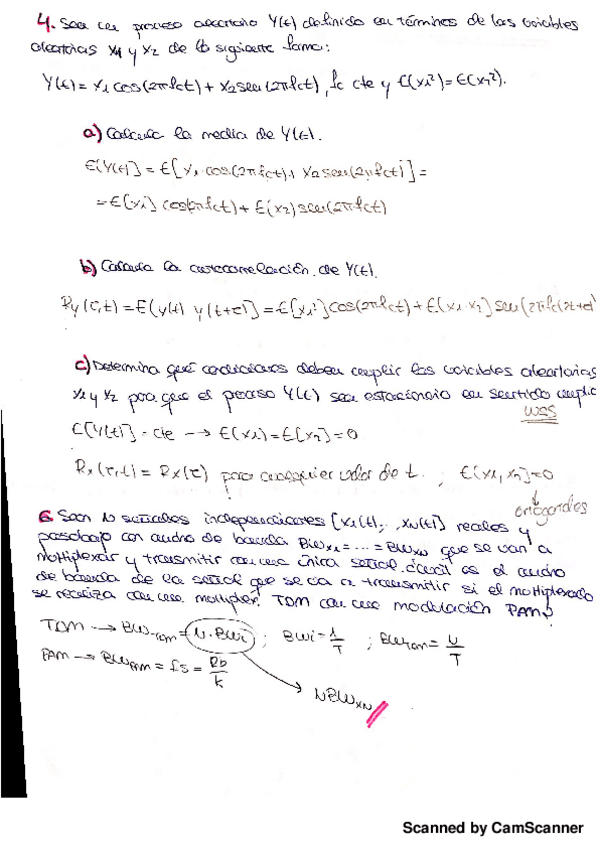 4. Sea un proceso aleatorio Y(t) definido en términos de las variables
aleatorias x1 y x2 de la siguiente forma:
Y(t) = x1 cos(2πfct) + x2 sen(2πfct), fc cte y E(x1²) = E(x2²).
a) Calcula la media de Y(t).
E[Y(t)] = E[x1 · cos(2πfct) + x2 sen(2πfct)] =
= E[x1] cos(2πfct) + E(x2) sen(2πfct)
b) Calcula la autocorrelación de Y(t).
Ry(τ,t) = E[y(t) y(t+τ)] = E[x1²] cos(2πfcτ) + E[x1 x2] sen(2πfc(2t+τ)
c) Determina qué condiciones deben cumplir las variables aleatorias
x1 y x2 para que el proceso Y(t) sea estacionario en sentido amplio
WSS
E[Y(t)] = cte → E(x1) = E[x2] = 0
Rx(τ,t) = Rx(τ) para cualquier valor de t. ; E(x1,x2) = 0
ortogonales
6. Sean N señales independientes [x1(t), ..., xN(t)] reales y
pasobajo con ancho de banda BWx1 = ... = BWxN que se van a
multiplexar y transmitir con una única señal. ¿cuál es el ancho
de banda de la señal que se va a transmitir si el multiplexado
se realiza con una multiplex. TDM con una modulación PAM?
TDM → BWTDM = N · BWi ; BWi = 1/T ; BWTDM = N/T
PAM → BWPAM = fs = Rb/k
NBWxN
Scanned by CamScanner